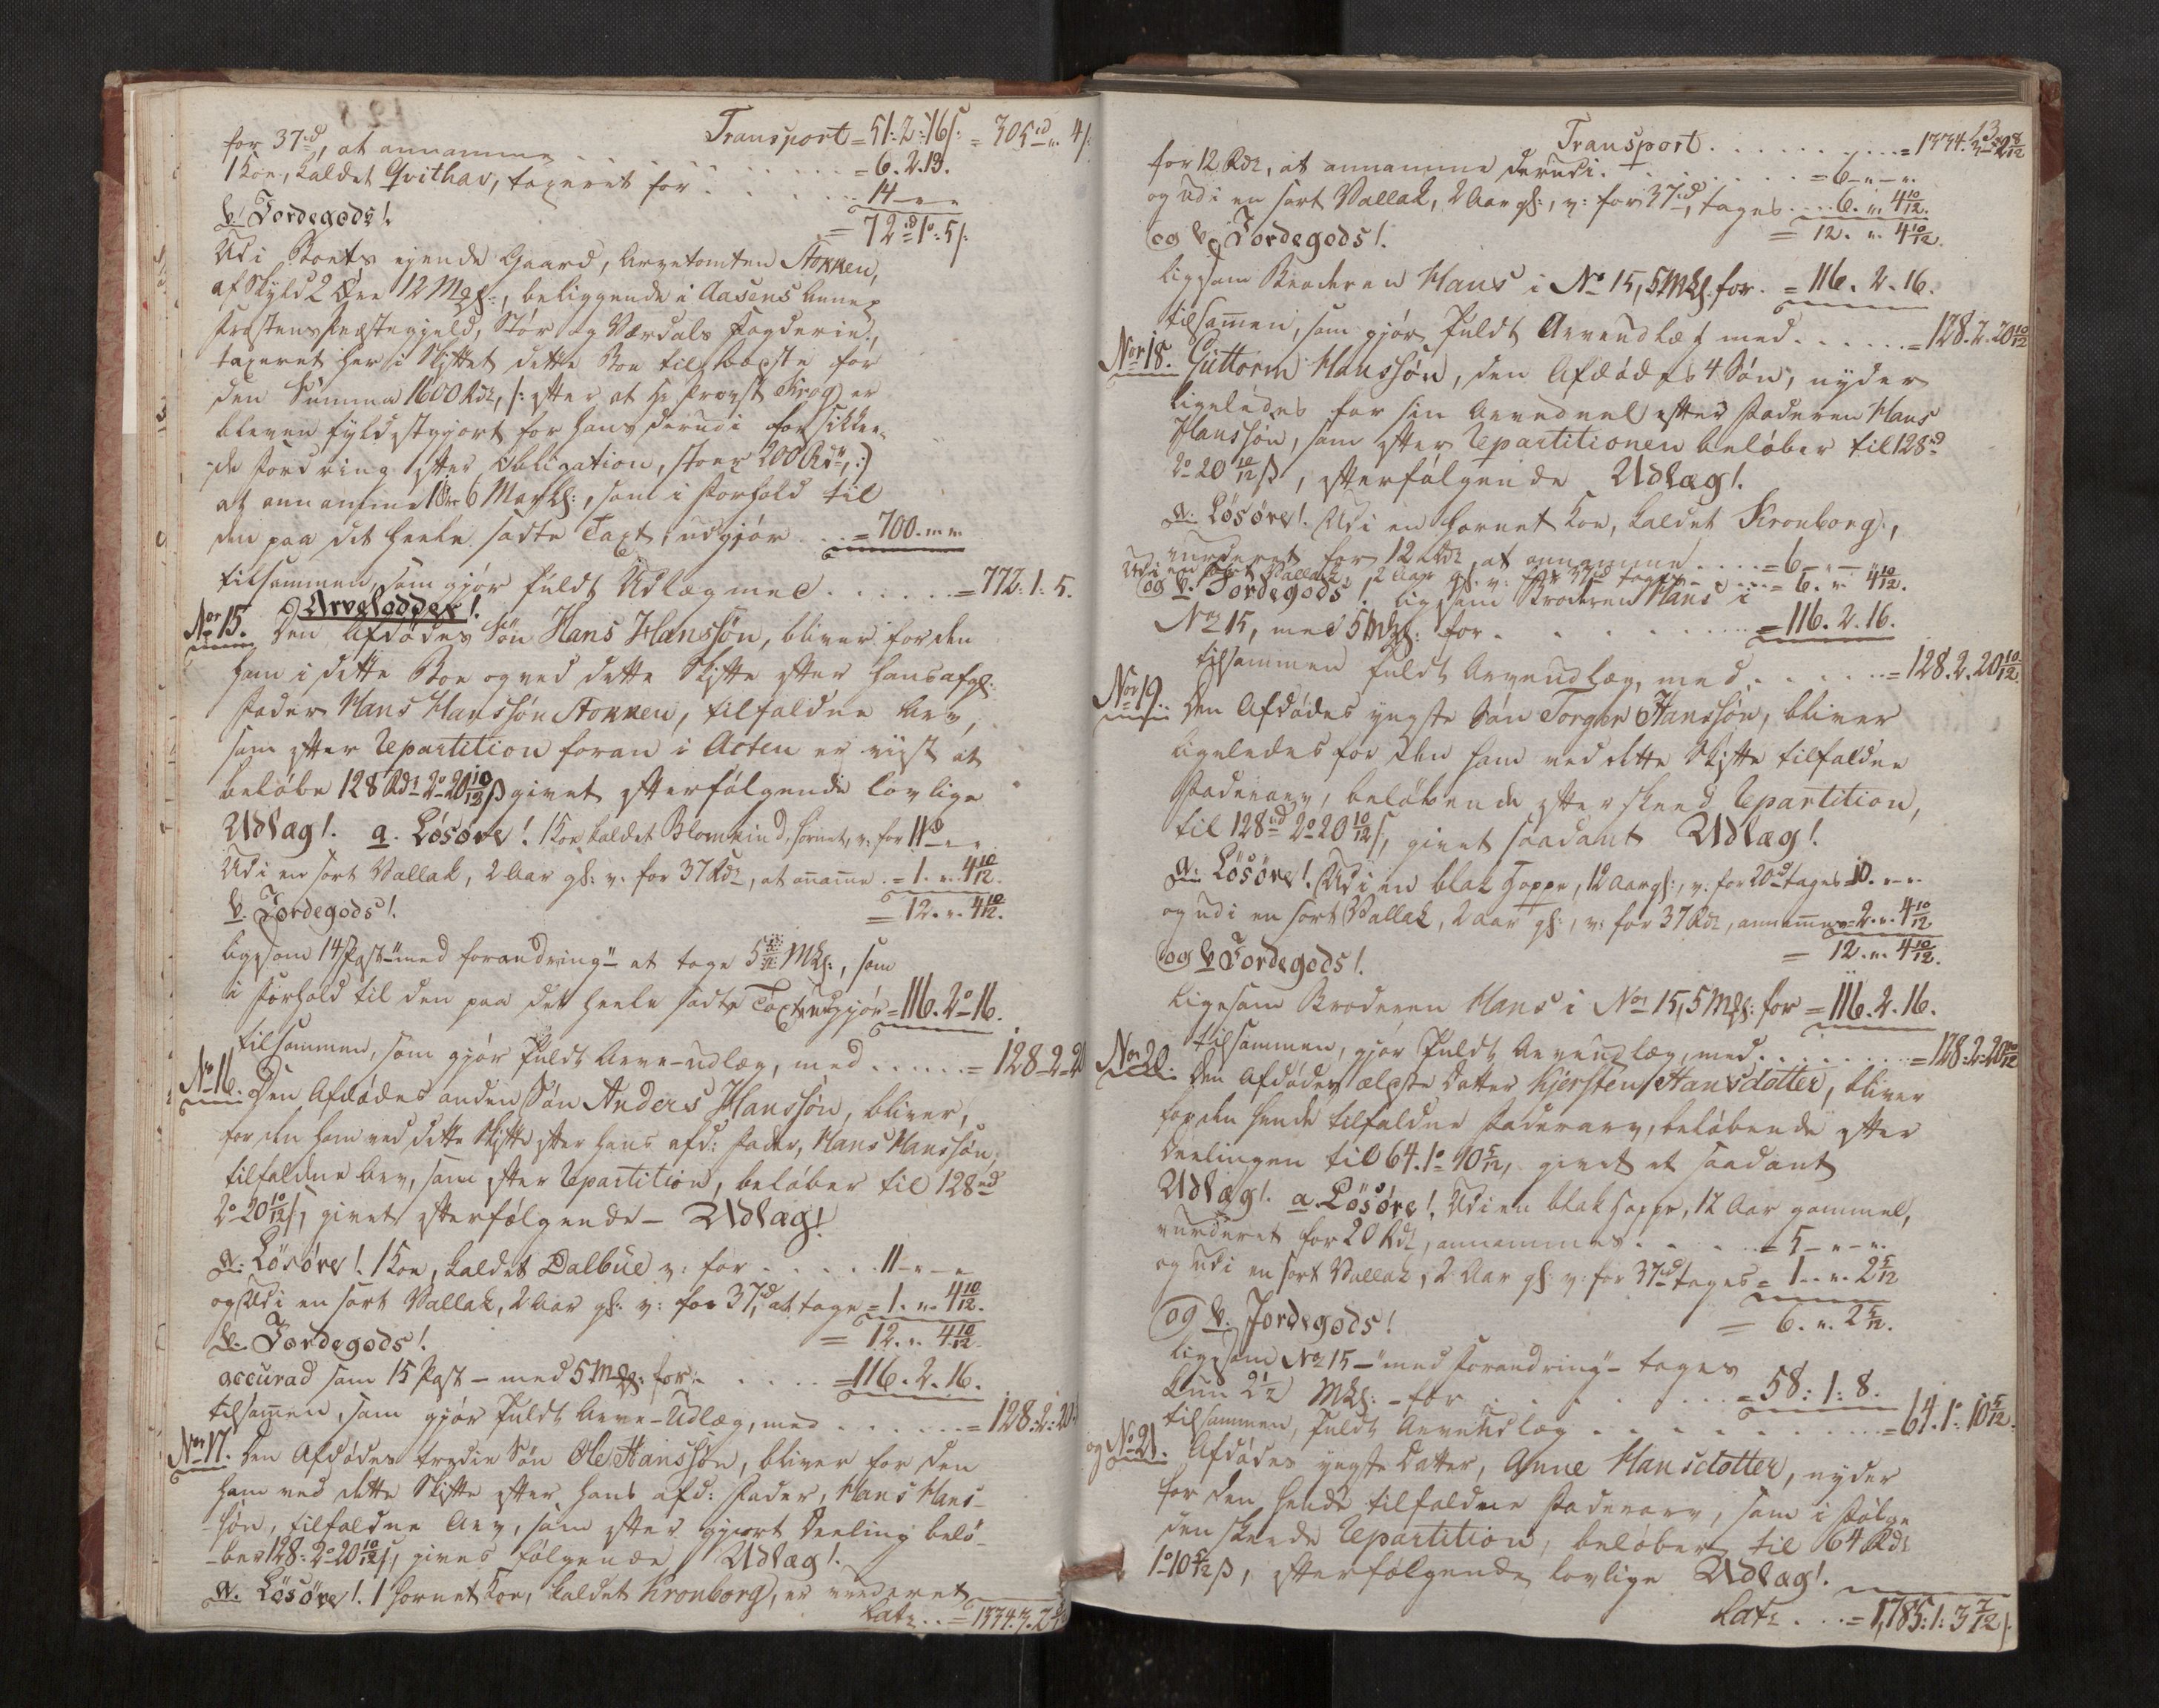 Transport = 51:2:16/: = 305rd „ 4/:
for 37rd, at annamme . . . . . . = 6. 2. 13.
1 Koe, kaldet Qvithav, taxeret for . . . . . 14 „ „
b. Jordegods! = 72rd 1o: 5/:
Udi Boets eyende Gaard, Arvetomten Stokken,
af Skyld 2 Øre 12 Mgl:, beliggende i Aasens Annex
Frostens Præstegield, Stør og Værdals Fogderie,
taxeret her i Skiftet dette Boe tilhørste for
den Summa 1600 Rdr, /: efter at Hr Provst Krog er
bleven fyldestgiort for hans derudi forsikkre-
de Fordring efter Obligation, stoer 200 Rdr, :/
at annamme 1 Øre 6 Markl:, som i Forhold til
den paa det heele sadte Taxt, udgiør . . = 700. „ „
tilsammen, som giør fuldt Udlæg med . . . . . . = 772: 1: 5.
Arvelodder!
Nor 15. Den Afdødes Søn Hans Hanssøn, bliver for den
ham i dette Boe og ved dette Skifte efter hans afgl:
Fader Hans Hanssøn Stokken, tilfaldne Arv,
som efter Repartition foran i Acten er viist at
beløbe 128 Rdr 2o 20 10/12 ß givet efterfølgende lovlige
Udlæg! a. Løsøre! 1 Koe kaldet Blomrind, hornet, v: for 11rd „ „
Udi en sort Vallak, 2 Aar gl: v: for 37 Rdr, at an̄am̄e . = 1. „ 4 10/12.
b. Jordegods! = 12. „ 4 10/12.
ligesom 14 Post „med forandring„ at tage 5 Mkl:, som
i Forhold til den paa det heele sadte Taxt udgiør = 116. 2o 16.
tilsammen, som giør fuldt Arve-udlæg, med . . . . . . = 128 2 20
No 16. Den Afdødes anden Søn Anders Hanssøn, bliver,
for den ham ved dette Skifte efter hans afd: Fader, Hans Hanssøn,
tilfaldne Arv, som efter Repartition, beløber til 128rd
2o 20 10/12 /:, givet efterfølgende – Udlæg!
a. Løsøre! 1 Koe, kaldet Dalbue v: for . . . . . 11 „ „
og Udi en sort Vallak, 2 Aar gl: v: for 37rd, at tage = 1. „ 4 10/12.
b. Jordegods! = 12. „ 4 10/12.
accurad som 15 Post – med 5 Mkl: for . . . . . = 116. 2. 16.
tilsam̄en, som giør fuldt Arve-Udlæg, med . . . . . . = 128: 2: 20
Nor 17. Den Afdødes tredie Søn Ole Hanssøn, bliver for den
ham ved dette Skifte efter hans afd: Fader, Hans Hans-
søn, tilfaldne Arv, som efter giort Deeling belø-
-ber 128: 2o 20 10/12 /:, gives følgende Udlæg!
a. Løsøre! 1 hornet Koe, kaldet Kronborg, er vurderet
Latr . . = 1334. 3. 2
13
Transport . . . . . . . . . = 1334. 3. 2 8/12
for 12 Rdr, at annamme derudi . . . . . . = 6 – „ – „
og udi en sort Vallak, 2 Aar gl:, v: for 37rd, tages . . . . 6. „ 4 10/12.
og b. Jordegods! = 12. „ 4 10/12.
ligesom Broderen Hans i No 15, 5 Mkl: for . = 116. 2. 16.
tilsam̄en, som giør fuldt Arveudlæg med . . . . . . = 128. 2. 20 10/12
Nor 18. Guttorm Hanssøn, den Afdødes 4 Søn, nyder
ligeledes for sin Arvedeel efter Faderen Hans
Hanssøn, som efter Repartitionen beløber til 128rd
2o 20 10/12 ß, efterfølgende Udlæg!
a. Løsøre! Udi en hornet Koe, kaldet Kronborg,
vurderet for 12 Rdr, at annamme . . . . = 6 – „ – „
Udi en sort Vallak, 2 Aar gl: v: for 37rd tages . . . . = 6. „ 4 10/12.
og b. Jordegods! ligesom Broderen Hans i
Nor 15, med 5 Mkl: for . . . . . . . . = 116. 2. 16.
tilsammen fuldt Arveudlæg, med . . . . . . = 128. 2. 20 10/12
Nor 19. Den Afdødes yngste Søn Torger Hanssøn, bliver
ligeledes for den ham ved dette Skifte tilfaldne
Faderarv, beløbende efter skeed Repartition,
til 128rd 2o 20 10/12 /:, givet saadant Udlæg!
a. Løsøre! Udi en blak Hoppe, 12 Aar gl:, v: for 20rd tages 10. „ „
og udi en sort Vallak, 2 Aar gl:, v: for 37 Rdr, annam̄es = 2. „ 4 10/12
og b. Jordegods! = 12. „ 4 10/12.
ligesom Broderen Hans i Nor 15, 5 Mkl: for = 116. 2. 16.
tilsammen, giør fuldt Arveudlæg, med . . . . . . . = 128: 2: 20 10/12
Nor 20. Den Afdødes ælste Datter Kjersten Hansdatter, bliver
for den hende tilfaldne Faderarv, beløbende efter
Deelingen til 64. 1o 10 5/12, givet et saadant
Udlæg! a. Løsøre! Udi en blak Hoppe, 12 Aar gammel,
vurderet for 20 Rdr, annammes . . . . . = 5 – „ – „
og udi en sort Vallak, 2 Aar gl: v: for 37rd tages = 1. „ 2 5/12
og b. Jordegods! = 6. „ 2 5/12.
ligesom No 15 – „med Forandring„ – tages
kun 2 1/2 Mkl: – for . . . . . . . . = 58: 1: 8.
tilsammen, fuldt Arveudlæg . . . . . . . . . = 64. 1o: 10 5/12.
og No 21. Afdødes yngste Datter, Anne Hansdotter, nyder
for den hende tilfaldne Faderarv, som i Følge
den skeede Repartition, beløber til 64 Rdr
1o 10 5/12 ß, efterfølgende lovlige Udlæg!
Latr . . . = 1,785: 1: 3 7/12 /: